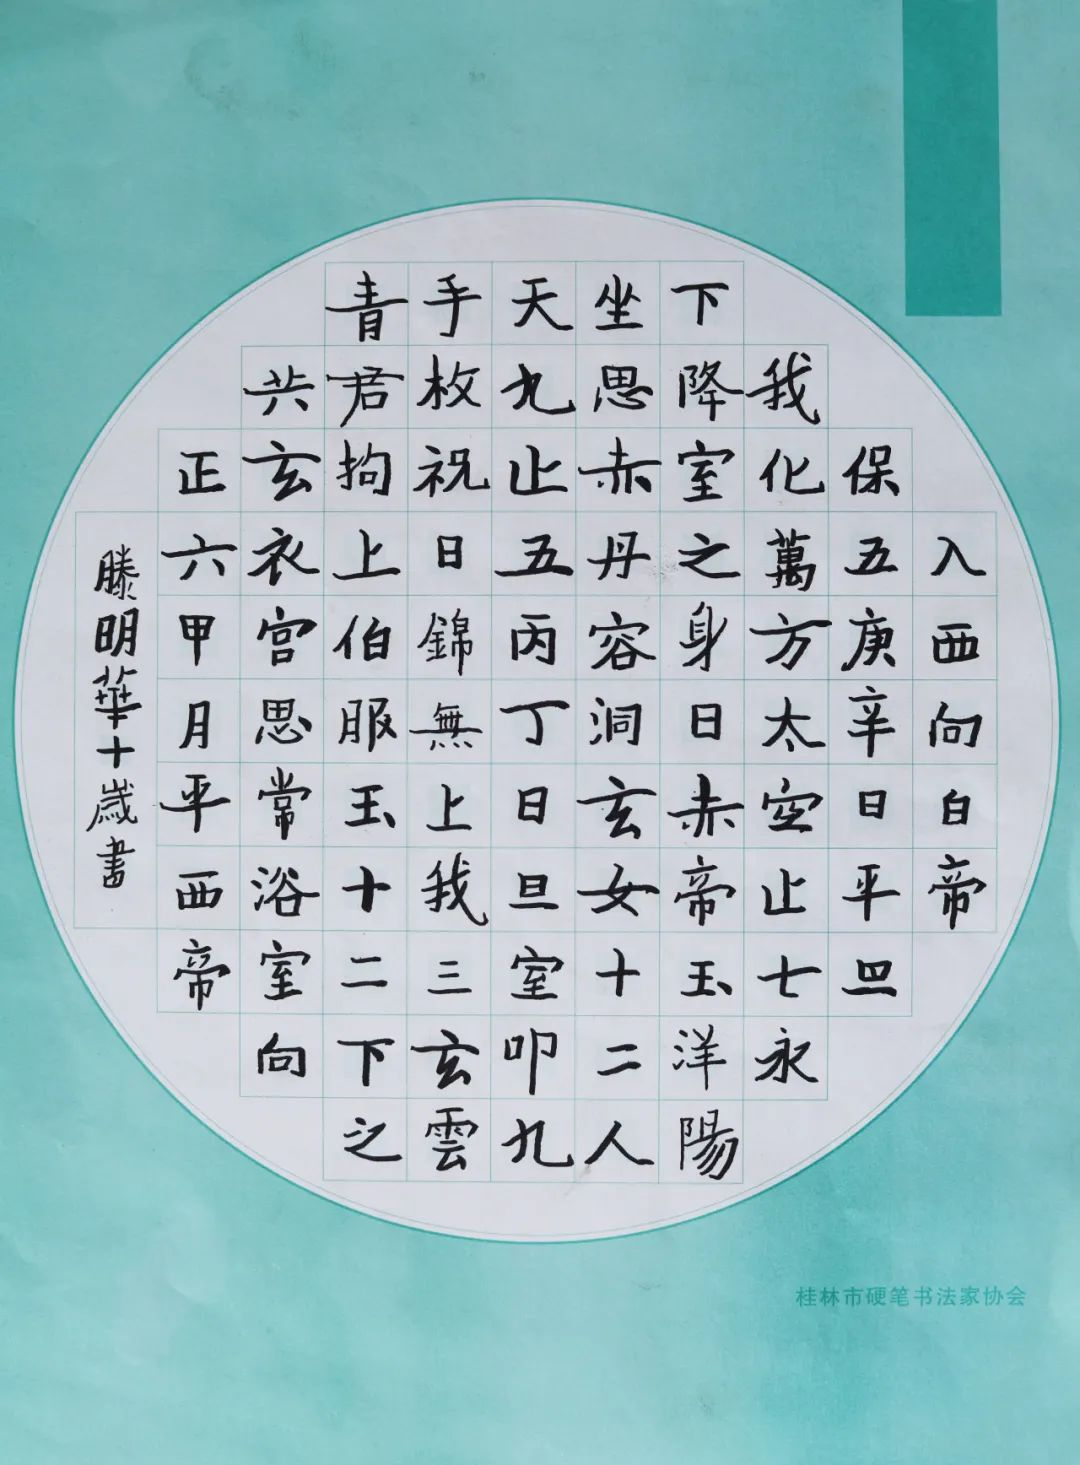 入西向白帝
保五庚辛日平旦
我化萬方太空止七永
下降室之身日赤帝玉洋陽
坐思赤丹容洞玄女十二人
天九止五丙丁日旦室叩九
手枚祝日錦無上我三玄雲
青君拘上伯服玉十二下之
共玄衣宫思常浴室向
正六甲月平西帝
滕明華十歲書
桂林市硬笔书法家协会